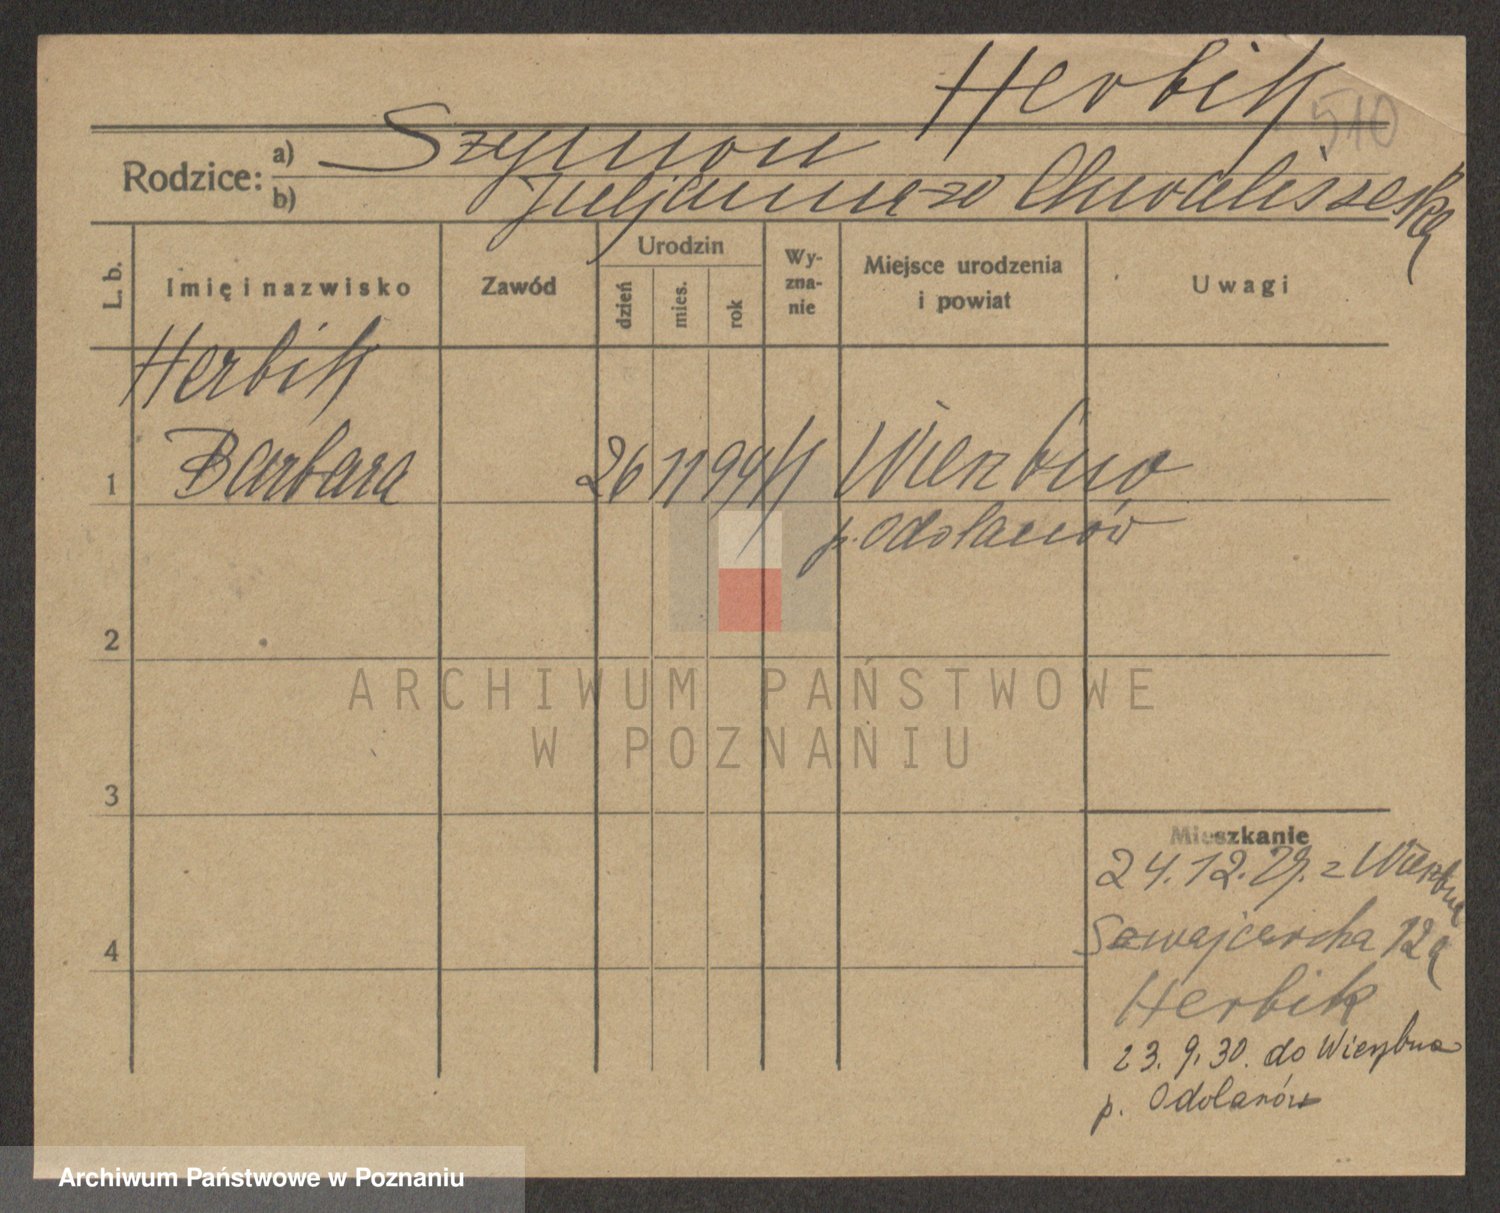 Herbik
510
Rodzice: a) Szymon
b) Juljanna zd Chwaliszewska
L. b.
Imię i nazwisko
Zawód
Urodzin
dzień
mies.
rok
Wy-
zna-
nie
Miejsce urodzenia
i powiat
Uwagi
Herbik
1 Barbara 26 11 Wierzbno
p. Odolanów
2
ARCHIWUM PAŃSTWOWE
W POZNANIU
3
Mieszkanie
24.12.29. z Wierzbna
Szwajcarska 12a
4
Herbik
23. 9. 30. do Wierzbna
p. Odolanów
Archiwum Państwowe w Poznaniu